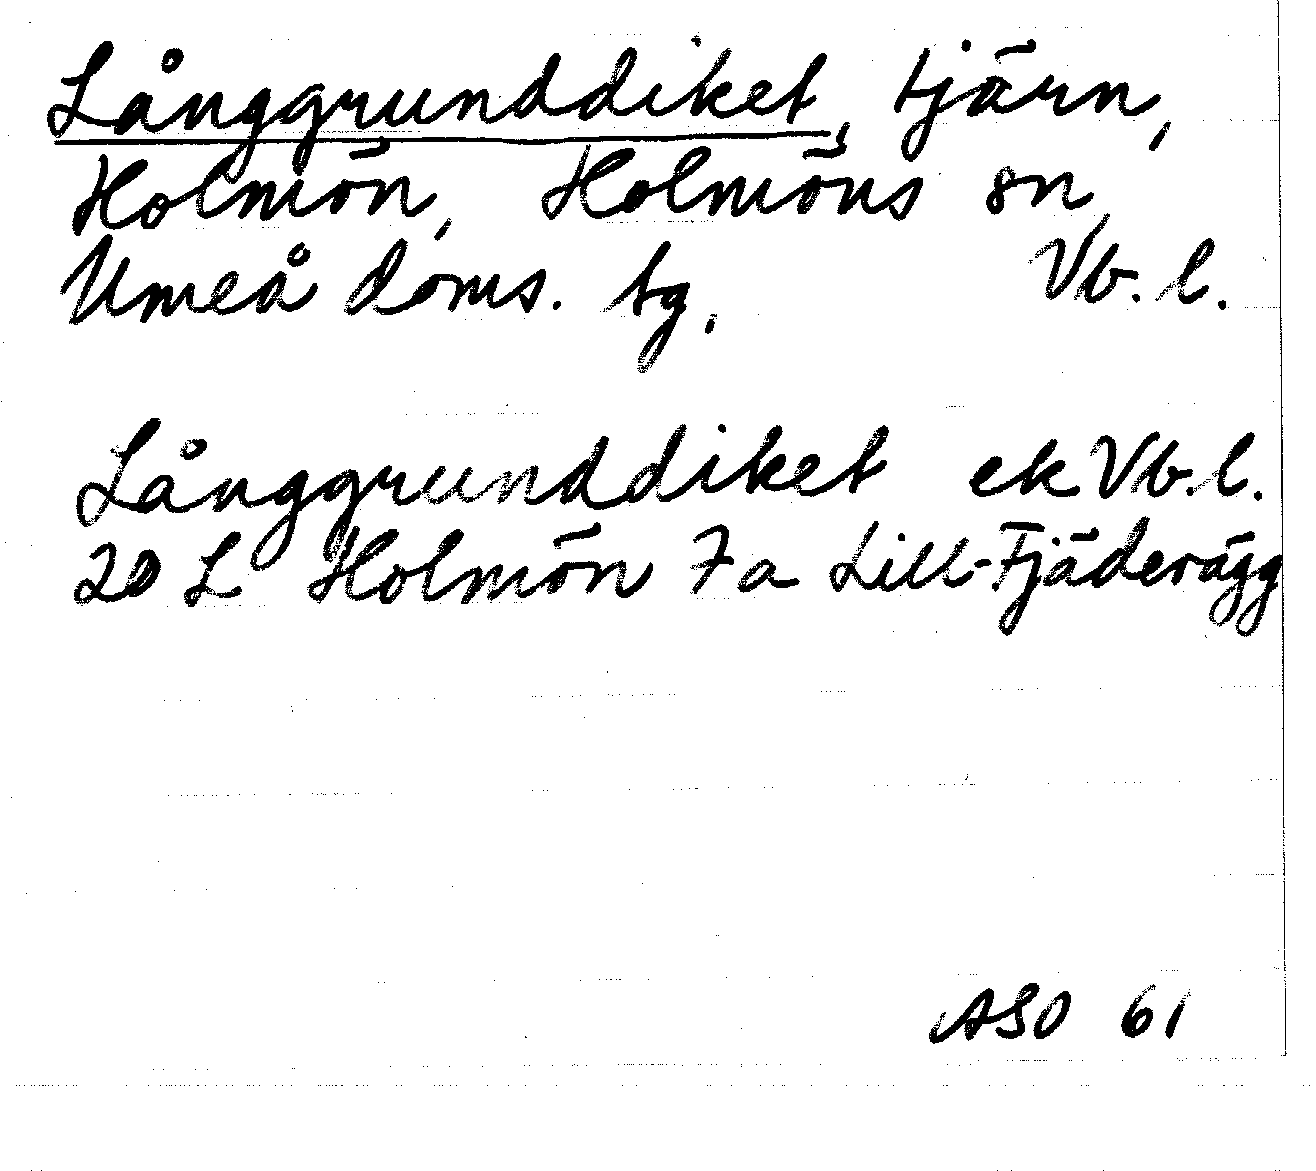 Långgrunddiket, tjärn,
Holmön, Holmöns sn
Umeå doms. tg, Vb. l.
Långgrunddiket ek Vb. l.
20 L Holmön 7 a Lill-Fjäderägg
ASO 61